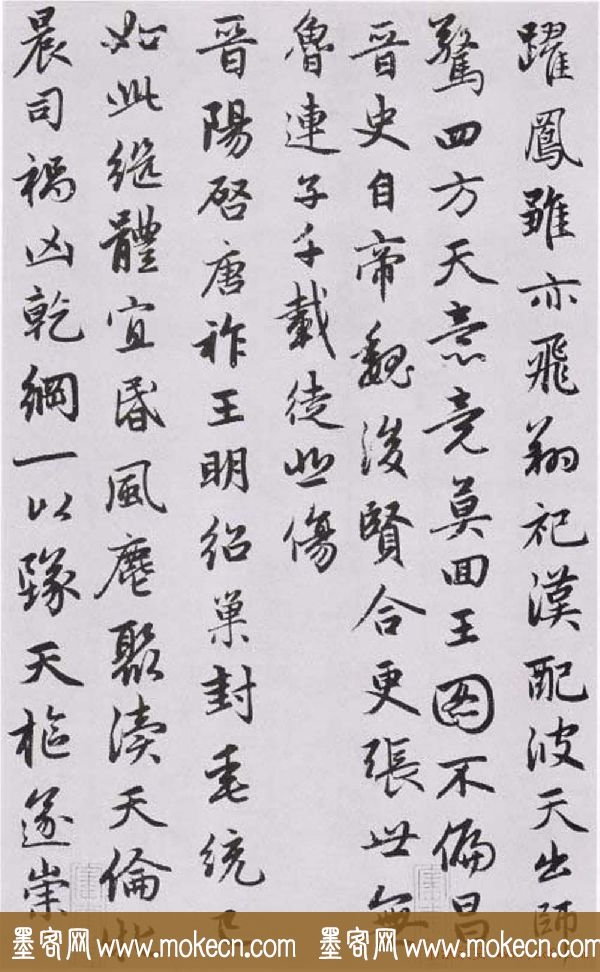 躍鳳雛亦飛翔祀漢配彼天出師
驚四方天意竟莫回王图不偏昌
晉史自帝魏後賢合更張世無
魯連子千載徒悲傷
晉陽啓唐祚王明紹巢封垂統已
如此継體宜昏風麀聚瀆天倫牝
晨司禍凶乾綱一以墜天樞遂崇
墨客网 www.mokecn.com 墨客网 www.mokecn.com